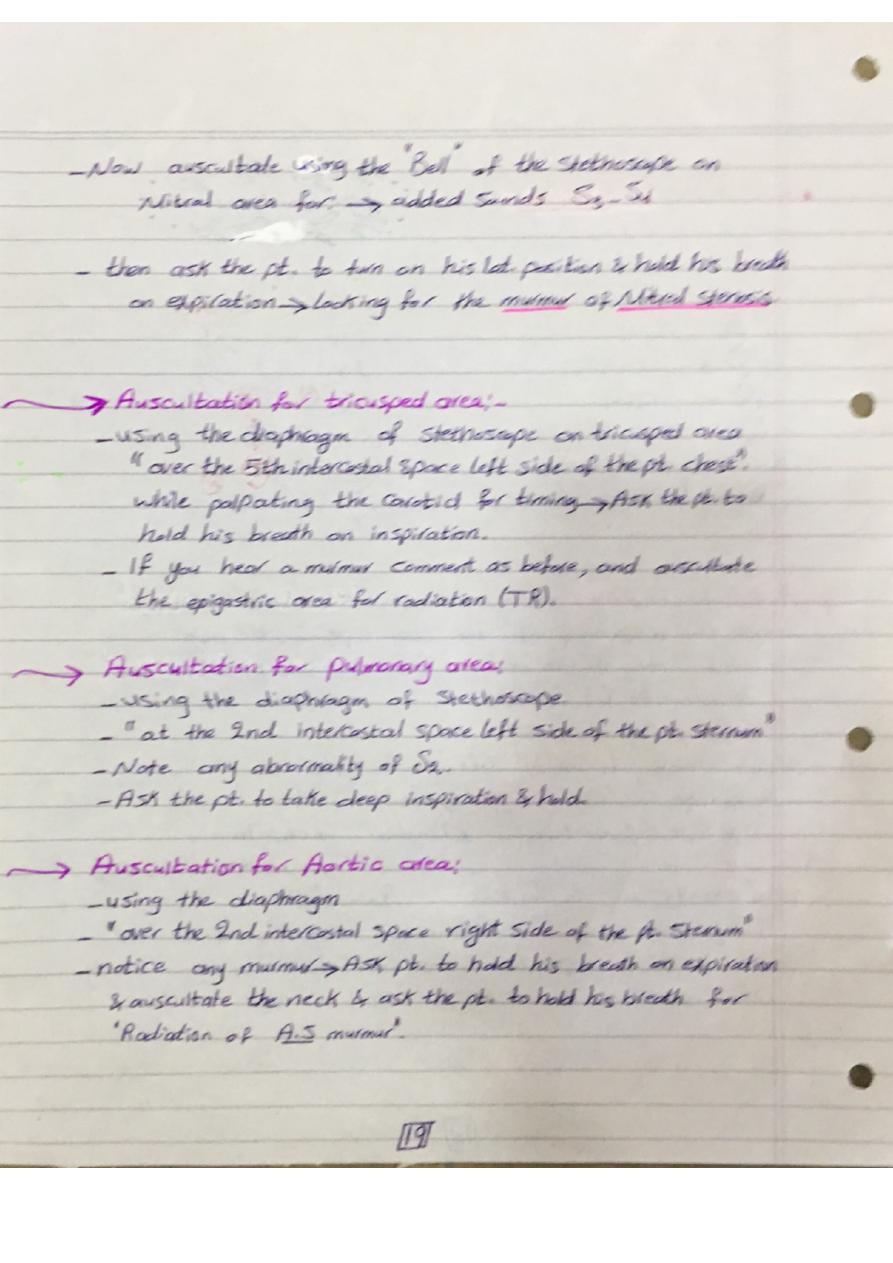 - Now auscultate using the "Bell" of the stethoscope on
Mitral area for. → added sounds S3 - S4
- then ask the pt. to turn on his lat. position & hold his breath
on expiration → looking for the murmur of Mitral stenosis
Auscultation for tricusped area:-
- using the diaphragm of stethoscope on tricusped area
"over the 5th intercostal space left side of the pt. chest".
while palpating the carotid for timing → Ask the pt. to
hold his breath on inspiration.
- If you hear a murmur comment as before, and auscultate
the epigastric area for radiation (TR).
Auscultation for pulmonary area:
- using the diaphragm of stethoscope
- "at the 2nd intercostal space left side of the pt. sternum"
- Note any abnormality of S2.
- Ask the pt. to take deep inspiration & hold
Auscultation for Aortic area:
- using the diaphragm
- "over the 2nd intercostal space right side of the pt. sternum"
- notice any murmur → Ask pt. to hold his breath on expiration
& auscultate the neck & ask the pt. to hold his breath for
"Radiation of A.S murmur".
19